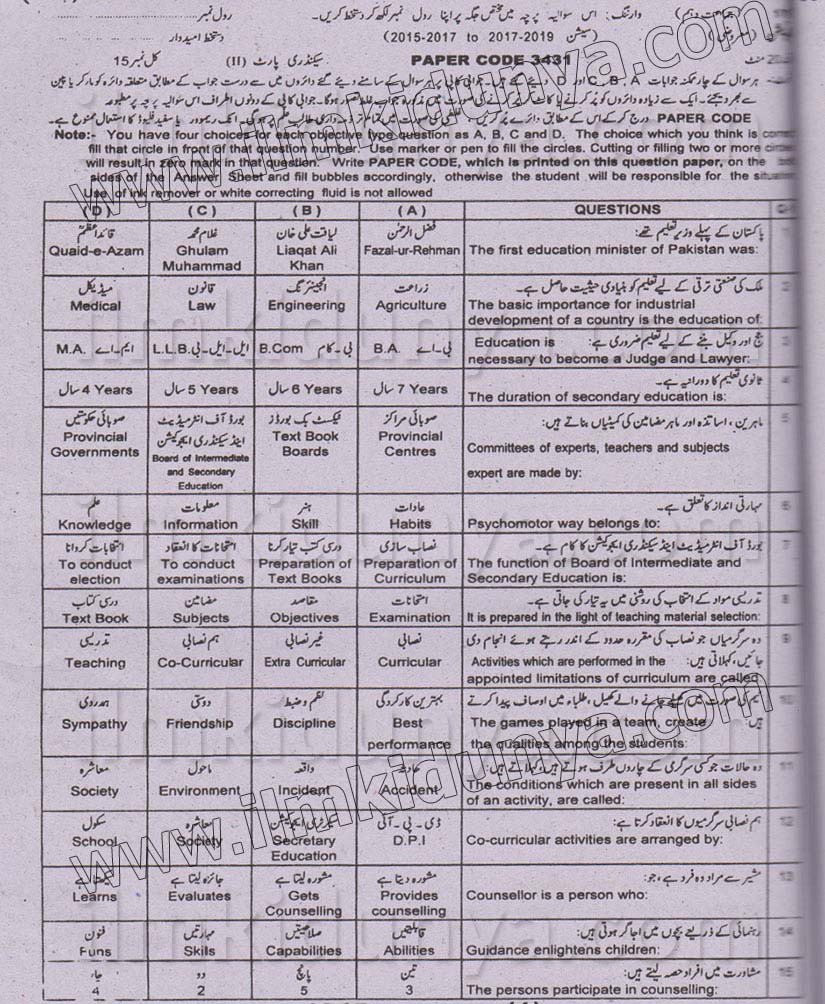 وارننگ: اس سوالیہ پرچہ میں مختص جگہ پر اپنا رول نمبر لکھ کر دستخط کریں۔ رول نمبر
(سیشن 2017-2019 to 2015-2017) دستخط امیدوار
PAPER CODE 3431 سیکنڈری پارٹ (II) کل نمبر 15
ہر سوال کے چار ممکنہ جوابات A، B، C اور D دیئے گئے ہیں۔ جوابی کاپی پر ہر سوال کے سامنے دیئے گئے دائروں میں سے درست جواب کے مطابق متعلقہ دائرہ کو مارکر یا پین
سے بھر دیجئے۔ ایک سے زیادہ دائروں کو پُر کرنے یا کاٹ کر پُر کرنے کی صورت میں مذکورہ جواب غلط تصور ہوگا۔ جوابی کاپی کے دونوں اطراف اس سوالیہ پرچہ پر مطبوعہ
PAPER CODE درج کر کے اس کے مطابق دائرے پُر کریں۔
Note:- You have four choices for each objective type question as A, B, C and D. The choice which you think is correct
fill that circle in front of that question number. Use marker or pen to fill the circles. Cutting or filling two or more circles
will result in zero mark in that question. Write PAPER CODE, which is printed on this question paper, on the
sides of the Answer Sheet and fill bubbles accordingly, otherwise the student will be responsible for the situation
Use of ink remover or white correcting fluid is not allowed
(D) (C) (B) (A) QUESTIONS
قائداعظم غلام محمد لیاقت علی خان فضل الرحمٰن پاکستان کے پہلے وزیر تعلیم تھے:
Quaid-e-Azam Ghulam Muhammad Liaqat Ali Khan Fazal-ur-Rehman The first education minister of Pakistan was:
میڈیکل قانون انجینئرنگ زراعت ملک کی صنعتی ترقی کے لیے تعلیم کو بنیادی حیثیت حاصل ہے۔ 2
Medical Law Engineering Agriculture The basic importance for industrial
development of a country is the education of:
M.A. ایم۔اے L.L.B. ایل۔ایل۔بی B.Com بی۔کام B.A. بی۔اے Education is جج اور وکیل بننے کے لیے تعلیم ضروری ہے: 3
necessary to become a Judge and Lawyer:
4 Years 4 سال 5 Years 5 سال 6 Years 6 سال 7 Years 7 سال ثانوی تعلیم کا دورانیہ ہے۔ 4
The duration of secondary education is:
صوبائی حکومتیں بورڈ آف انٹرمیڈیٹ اینڈ سیکنڈری ایجوکیشن ٹیکسٹ بک بورڈز صوبائی مراکز ماہرین، اساتذہ اور ماہر مضامین کی کمیٹیاں بناتے ہیں: 5
Provincial Governments Board of Intermediate and Secondary Education Text Book Boards Provincial Centres Committees of experts, teachers and subjects
expert are made by:
علم معلومات ہنر عادات مہارتی انداز کا تعلق ہے۔ 6
Knowledge Information Skill Habits Psychomotor way belongs to:
انتخابات کروانا امتحانات کا انعقاد درسی کتب تیار کرنا نصاب سازی بورڈ آف انٹرمیڈیٹ اینڈ سیکنڈری ایجوکیشن کا کام ہے۔ 7
To conduct election To conduct examinations Preparation of Text Books Preparation of Curriculum The function of Board of Intermediate and
Secondary Education is:
درسی کتاب مضامین مقاصد امتحانات تدریسی مواد کے انتخاب کی روشنی میں یہ تیار کی جاتی ہے۔ 8
Text Book Subjects Objectives Examination It is prepared in the light of teaching material selection:
تدریسی ہم نصابی غیر نصابی نصابی وہ سرگرمیاں جو نصاب کی مقررہ حدود کے اندر رہتے ہوئے انجام دی 9
Teaching Co-Curricular Extra Curricular Curricular Activities which are performed in the جائیں، کہلاتی ہیں:
appointed limitations of curriculum are called
ہمدردی دوستی نظم و ضبط بہترین کارکردگی ٹیم کی صورت میں کھیلے جانے والے کھیل، طلباء میں اوصاف پیدا کرتے 10
Sympathy Friendship Discipline Best performance The games played in a team, create ہیں:
the qualities among the students:
معاشرہ ماحول واقعہ حادثہ وہ حالات جو کسی سرگرمی کے چاروں طرف ہوتے ہیں، کہلاتے ہیں: 11
Society Environment Incident Accident The conditions which are present in all sides
of an activity, are called:
سکول معاشرہ سیکرٹری ایجوکیشن ڈی۔پی۔آئی ہم نصابی سرگرمیوں کا انعقاد کرتا ہے: 12
School Society Secretary Education D.P.I Co-curricular activities are arranged by:
سیکھتا ہے جائزہ لیتا ہے مشورہ لیتا ہے مشورہ دیتا ہے مشیر سے مراد وہ فرد ہے، جو: 13
Learns Evaluates Gets Counselling Provides counselling Counsellor is a person who:
فنون مہارتیں صلاحیتیں قابلیتیں رہنمائی کے ذریعے بچوں میں اجاگر ہوتی ہیں: 14
Funs Skills Capabilities Abilities Guidance enlightens children:
چار دو پانچ تین مشاورت میں افراد حصہ لیتے ہیں: 15
4 2 5 3 The persons participate in counselling:
www.ilmkidunya.com
www.ilmkidunya.com